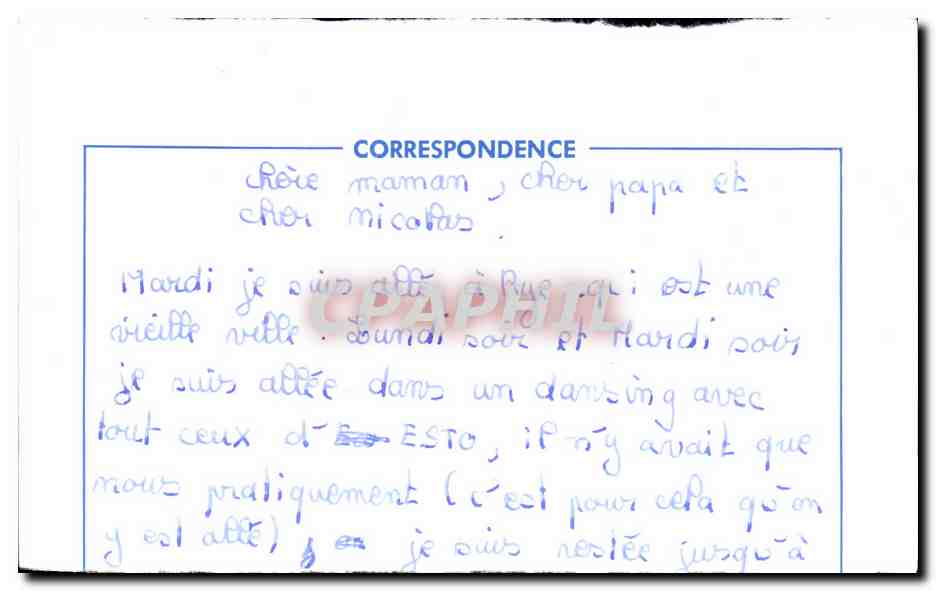 CORRESPONDENCE
chère maman, cher papa et
cher nicolas.
Mardi je suis allé à Rye qui est une
vieille ville. Lundi soir et Mardi soir
je suis allée dans un dansing avec
tout ceux d' ESTO, il n'y avait que
nous pratiquement (c'est pour cela qu'on
y est allé), je suis restée jusqu'à
CPAPHIL